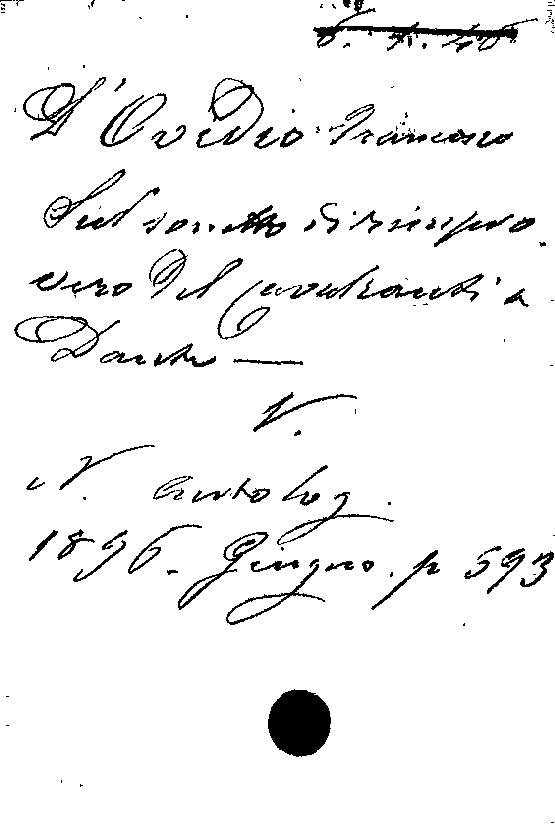 D'Ovidio Francesco
Sul sonetto di rimpro-
vero del Cavalcanti a
Dante —
V.
N. Antolog.
1896. Giugno. p 593